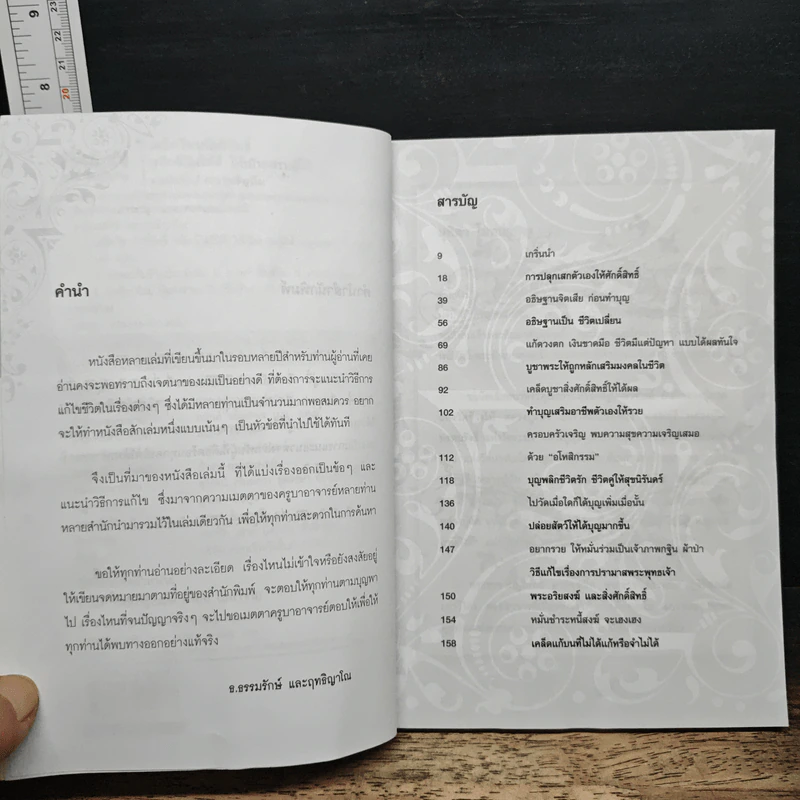 คำนำ
หนังสือหลายเล่มที่เขียนขึ้นมาในรอบหลายปีสำหรับท่านผู้อ่านที่เคย
อ่านคงจะพอทราบถึงเจตนาของผมเป็นอย่างดี ที่ต้องการจะแนะนำวิธีการ
แก้ไขชีวิตในเรื่องต่างๆ ซึ่งได้มีหลายท่านเป็นจำนวนมากพอสมควร อยาก
จะให้ทำหนังสือสักเล่มหนึ่งแบบเน้นๆ เป็นหัวข้อที่นำไปใช้ได้ทันที
จึงเป็นที่มาของหนังสือเล่มนี้ ที่ได้แบ่งเรื่องออกเป็นข้อๆ และ
แนะนำวิธีการแก้ไข ซึ่งมาจากความเมตตาของครูบาอาจารย์หลายท่าน
หลายสำนักนำมารวมไว้ในเล่มเดียวกัน เพื่อให้ทุกท่านสะดวกในการค้นหา
ขอให้ทุกท่านอ่านอย่างละเอียด เรื่องไหนไม่เข้าใจหรือยังสงสัยอยู่
ให้เขียนจดหมายมาตามที่อยู่ของสำนักพิมพ์ จะตอบให้ทุกท่านตามบุญพา
ไป เรื่องไหนที่จนปัญญาจริงๆ จะไปขอเมตตาครูบาอาจารย์ตอบให้เพื่อให้
ทุกท่านได้พบทางออกอย่างแท้จริง
ธ.ธรรมรักษ์ และฤทธิญาโณ
สารบัญ
9 เกริ่นนำ
18 การปลุกเสกตัวเองให้ศักดิ์สิทธิ์
39 อธิษฐานจิตเสีย ก่อนทำบุญ
56 อธิษฐานเป็น ชีวิตเปลี่ยน
69 แก้ดวงตก เงินขาดมือ ชีวิตมีแต่ปัญหา แบบได้ผลทันใจ
86 บูชาพระให้ถูกหลักเสริมมงคลในชีวิต
92 เคล็ดบูชาสิ่งศักดิ์สิทธิ์ให้ได้ผล
102 ทำบุญเสริมอาชีพตัวเองให้รวย
ครอบครัวเจริญ พบความสุขความเจริญเสมอ
112 ด้วย "อโหสิกรรม"
118 บุญพลิกชีวิตรัก ชีวิตคู่ให้สุขนิรันดร์
136 ไปวัดเมื่อใดก็ได้บุญเพิ่มเมื่อนั้น
140 ปล่อยสัตว์ให้ได้บุญมากขึ้น
147 อยากรวย ให้หมั่นร่วมเป็นเจ้าภาพกฐิน ผ้าป่า
วิธีแก้ไขเรื่องการปรามาสพระพุทธเจ้า
150 พระอริยสงฆ์ และสิ่งศักดิ์สิทธิ์
154 หมั่นชำระหนี้สงฆ์ จะเฮงเฮง
158 เคล็ดแก้บนที่ไม่ได้แก้หรือจำไม่ได้
9
8
23
22
21
20